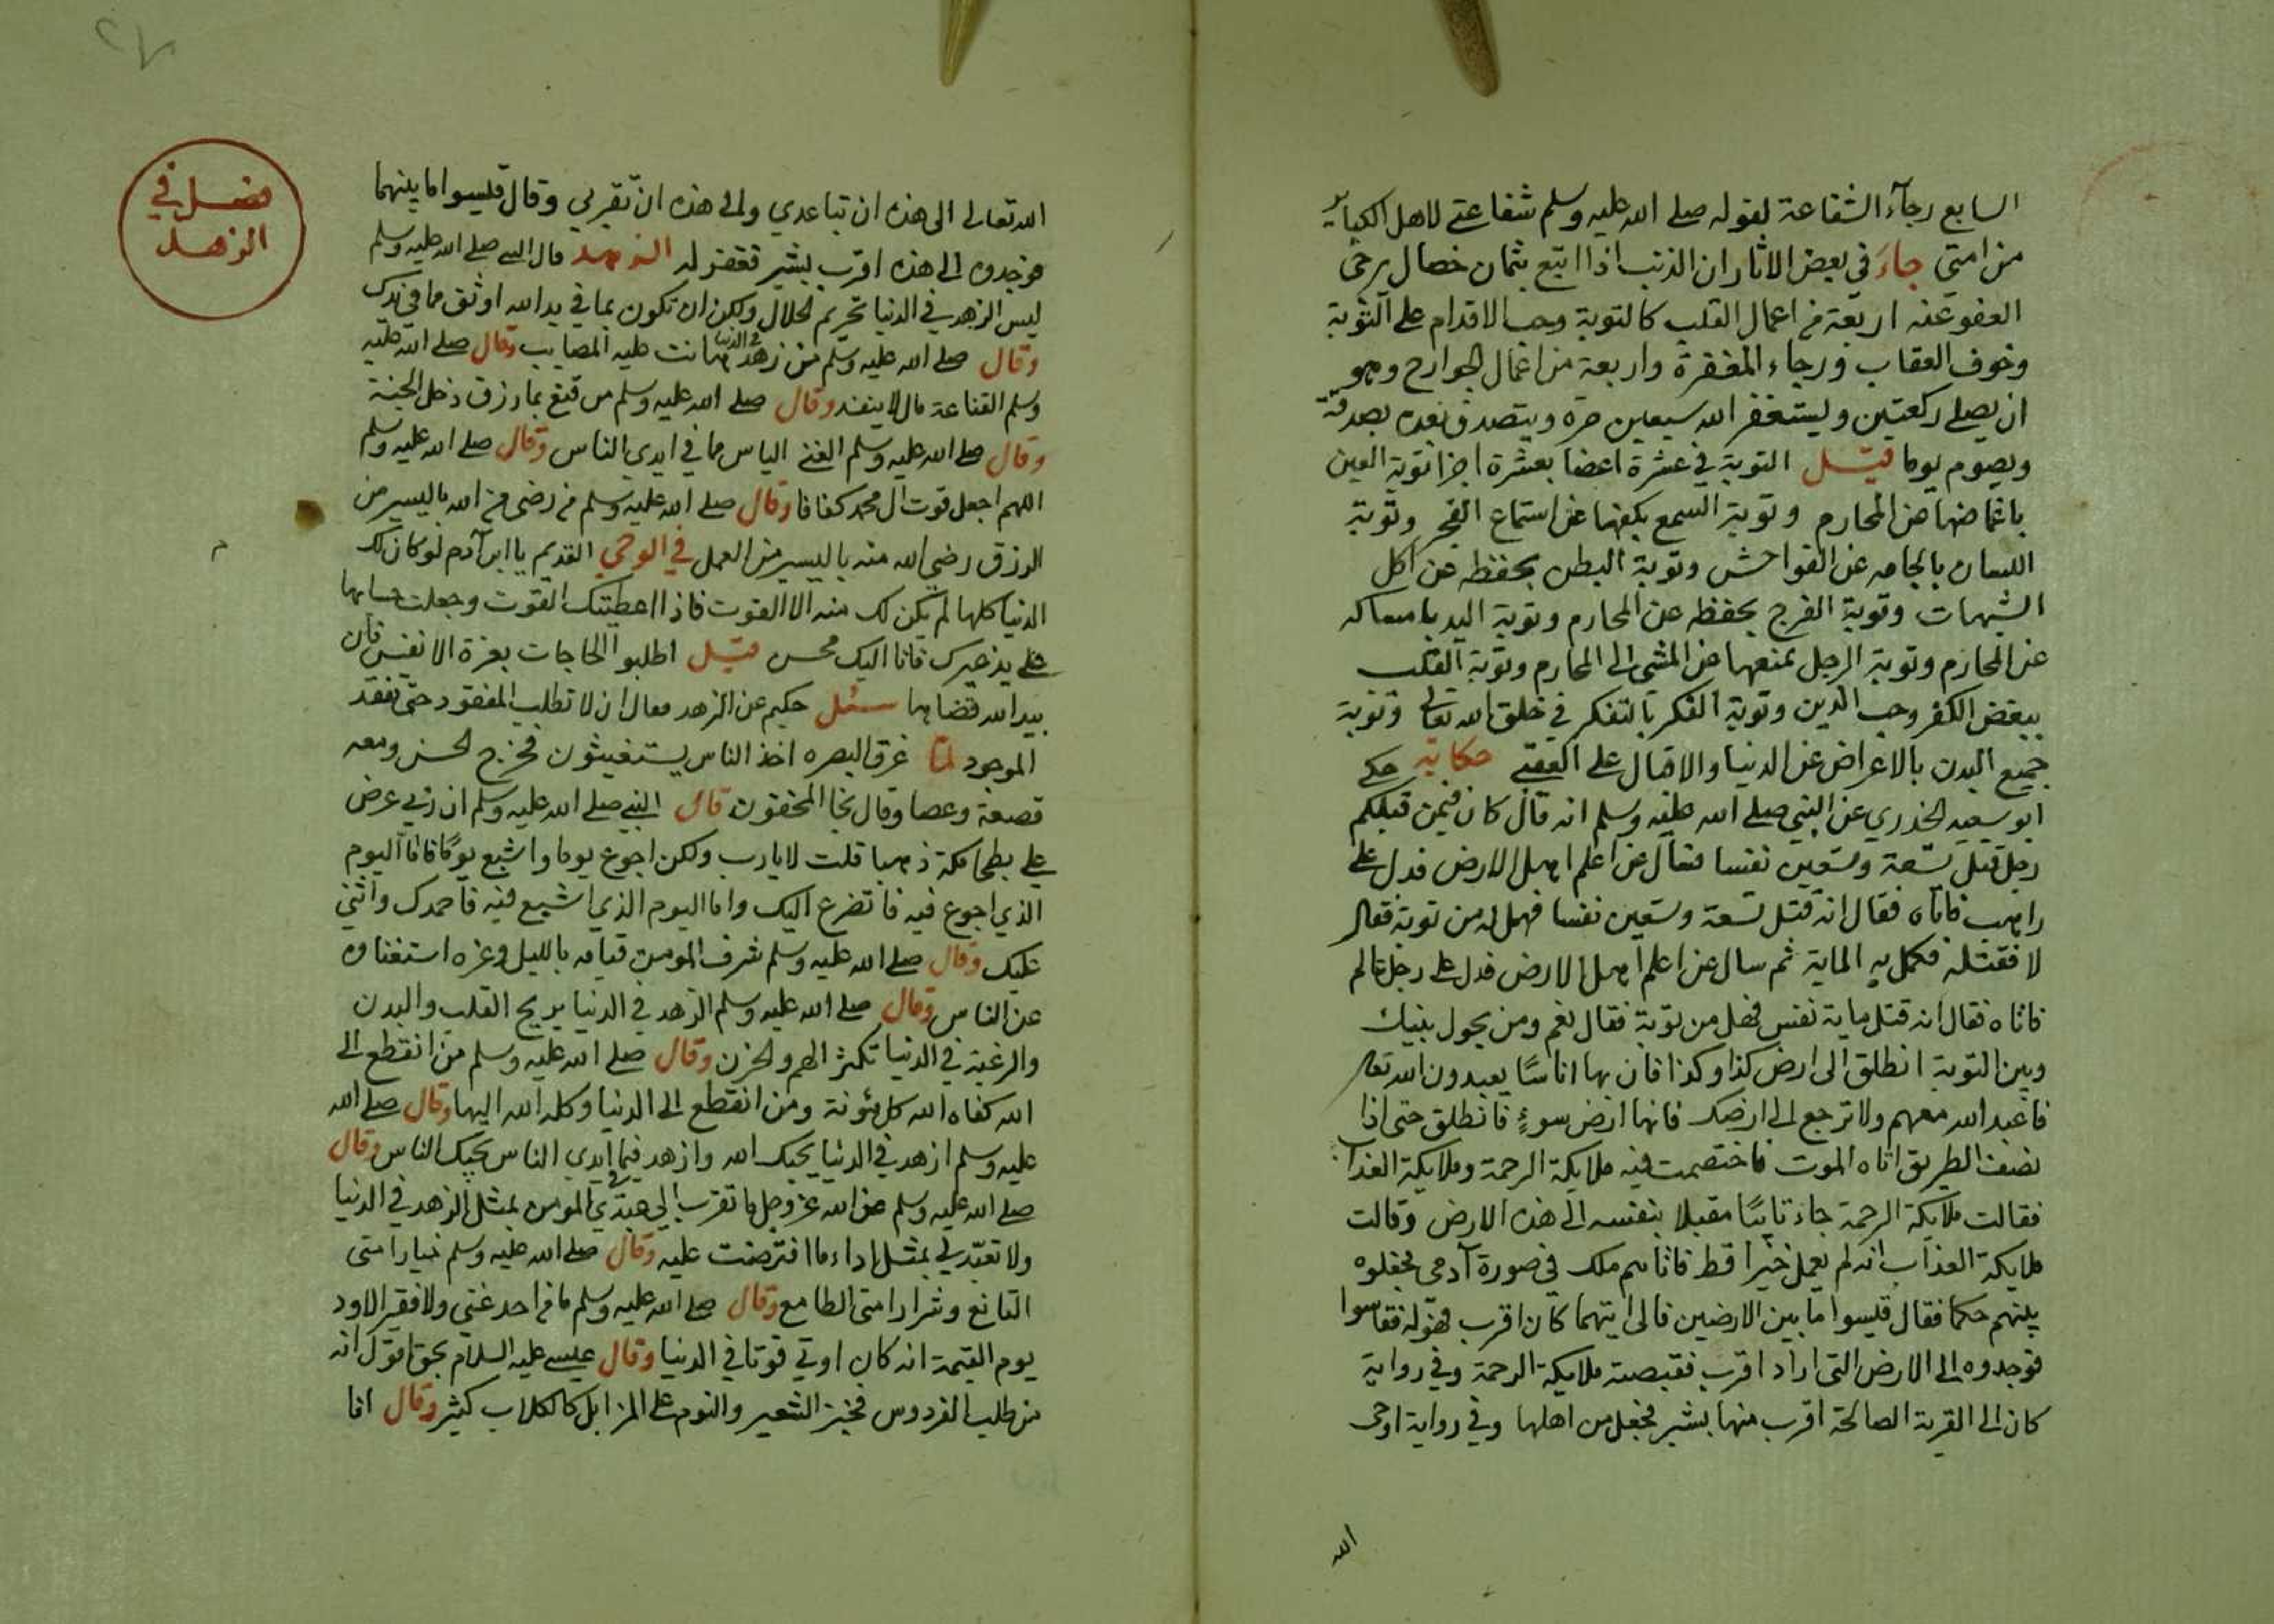 السابع رجآء الشفاعة لقوله صلى الله عليه وسلم شفاعتي لاهل الكباير
من امتي جاء في بعض الاثار ان الذنب اذا اتبع بثمان خصال يرجى
العفو عنه اربعة من اعمال القلب كالتوبة وحب الاقدام على التوبة
وخوف العقاب ورجاء المغفرة واربعة من اعمال الجوارح وهو
ان يصلي ركعتين ويستغفر الله سبعين مرة ويتصدق بعده بصدقة
ويصوم يوما قيل التوبة في عشرة اعضا بعشرة اجزا توبة العين
باغماضها عن المحارم وتوبة السمع بكفها عن استماع الفجر وتوبة
اللسان بالجامه عن الفواحش وتوبة البطن بحفظه عن اكل
الشبهات وتوبة الفرج بحفظه عن المحارم وتوبة اليد بامساكه
عن المحارم وتوبة الرجل بمنعها عن المشي الى المحارم وتوبة القلب
ببغض الكفر وحب الدين وتوبة الفكر بالتفكر في خلق الله تعالى وتوبة
جميع البدن بالاعراض عن الدنيا والاقبال على العقبى حكاية حكي
ابو سعيد الخدري عن النبي صلى الله عليه وسلم انه قال كان فيمن قبلكم
رجل قتل تسعة وتسعين نفسا فسال عن اعلم اهل الارض فدل على
راهب فاتاه فقال انه قتل تسعة وتسعين نفسا فهل له من توبة فقال
لا فقتله فكمل به الماية ثم سال عن اعلم اهل الارض فدل على رجل عالم
فاتاه فقال انه قتل ماية نفس فهل من توبة فقال نعم ومن يحول بينك
وبين التوبة انطلق الى ارض كذا وكذا فان بها اناسًا يعبدون الله تعالى
فاعبد الله معهم ولا ترجع الى ارضك فانها ارض سوءٍ فانطلق حتى اذا
نصف الطريق اتاه الموت فاختصمت فيه ملايكة الرحمة وملايكة العذاب
فقالت ملايكة الرحمة جاء تائبًا مقبلا بنفسه الى هذه الارض وقالت
ملايكة العذاب انه لم يعمل خيرا قط فاتاهم ملك في صورة آدمي فجعلوه
بينهم حكما فقال قيسوا ما بين الارضين فالى ايتهما كان اقرب فهو له فقاسوا
فوجدوه الى الارض التي اراد اقرب فقبضته ملايكة الرحمة وفي رواية
كان الى القرية الصالحة اقرب منها بشبر فجعل من اهلها وفي رواية اوحى
الله
الله تعالى الى هذه ان تباعدي والى هذه ان تقربي وقال قيسوا ما بينهما
فوجدوه الى هذه اقرب بشبر فغفر له الزهد قال النبي صلى الله عليه وسلم
ليس الزهد في الدنيا تحريم الحلال ولكن ان تكون بما في يد الله اوثق مما في يدك
وقال صلى الله عليه وسلم من زهد في الدنيا هانت عليه المصايب وقال صلى الله عليه
وسلم القناعة مال لا ينفد وقال صلى الله عليه وسلم من قنع بما رزق دخل الجنة
وقال صلى الله عليه وسلم الغنى الياس مما في ايدي الناس وقال صلى الله عليه وسلم
اللهم اجعل قوت آل محمد كفافا وقال صلى الله عليه وسلم من رضي من الله باليسير من
الرزق رضي الله منه باليسير من العمل في الوحي القديم يا ابن آدم لو كان لك
الدنيا كلها لم يكن لك منه الا القوت فاذا اعطيتك القوت وجعلت حسابها
على يد غيرك فانا اليك محسن قيل اطلبوا الحاجات بعزة الانفس فان
بيد الله قضايها سئل حكيم عن الزهد فقال ان لا تطلب المفقود حتى تفقد
الموجود لما غرق البصره اخذ الناس يستغيثون فخرج الحسن ومعه
قصعة وعصا وقال نجا المخففون قال النبي صلى الله عليه وسلم ان ربي عرض
علي بطحا مكة ذهبا قلت لا يارب ولكن اجوع يوما واشبع يومًا فاما اليوم
الذي اجوع فيه فاتضرع اليك واما اليوم الذي اشبع فيه فاحمدك واثني
عليك وقال صلى الله عليه وسلم شرف المومن قيامه بالليل وعزه استغناوه
عن الناس وقال صلى الله عليه وسلم الزهد في الدنيا يريح القلب والبدن
والرغبة في الدنيا تكثر الهم والحزن وقال صلى الله عليه وسلم من انقطع الى
الله كفاه الله كل مؤنة ومن انقطع الى الدنيا وكله الله اليها وقال صلى الله
عليه وسلم ازهد في الدنيا يحبك الله وازهد فيما في ايدي الناس يحبك الناس وقال
صلى الله عليه وسلم عن الله عز وجل ما تقرب الي عبدي المومن بمثل الزهد في الدنيا
ولا تعبد لي بمثل اداء ما افترضت عليه وقال صلى الله عليه وسلم خيار امتي
القانع وشرار امتي الطامع وقال صلى الله عليه وسلم ما من احد غني ولا فقير الا ود
يوم القيمة انه كان اوتي قوتا في الدنيا وقال عيسى عليه السلام بحق اقول انه
من طلب الفردوس فخبز الشعير والنوم على المزابل كالكلاب كثير وقال انا
فصل في
الزهد